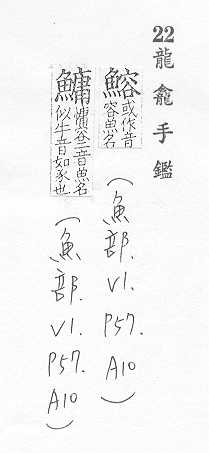 22 龍龕手鑑
鰫 或作音容魚名 (魚部. V1. P57. A10)
鱅 慵容二音魚名似牛音如豕也 (魚部. V1. P57. A10)